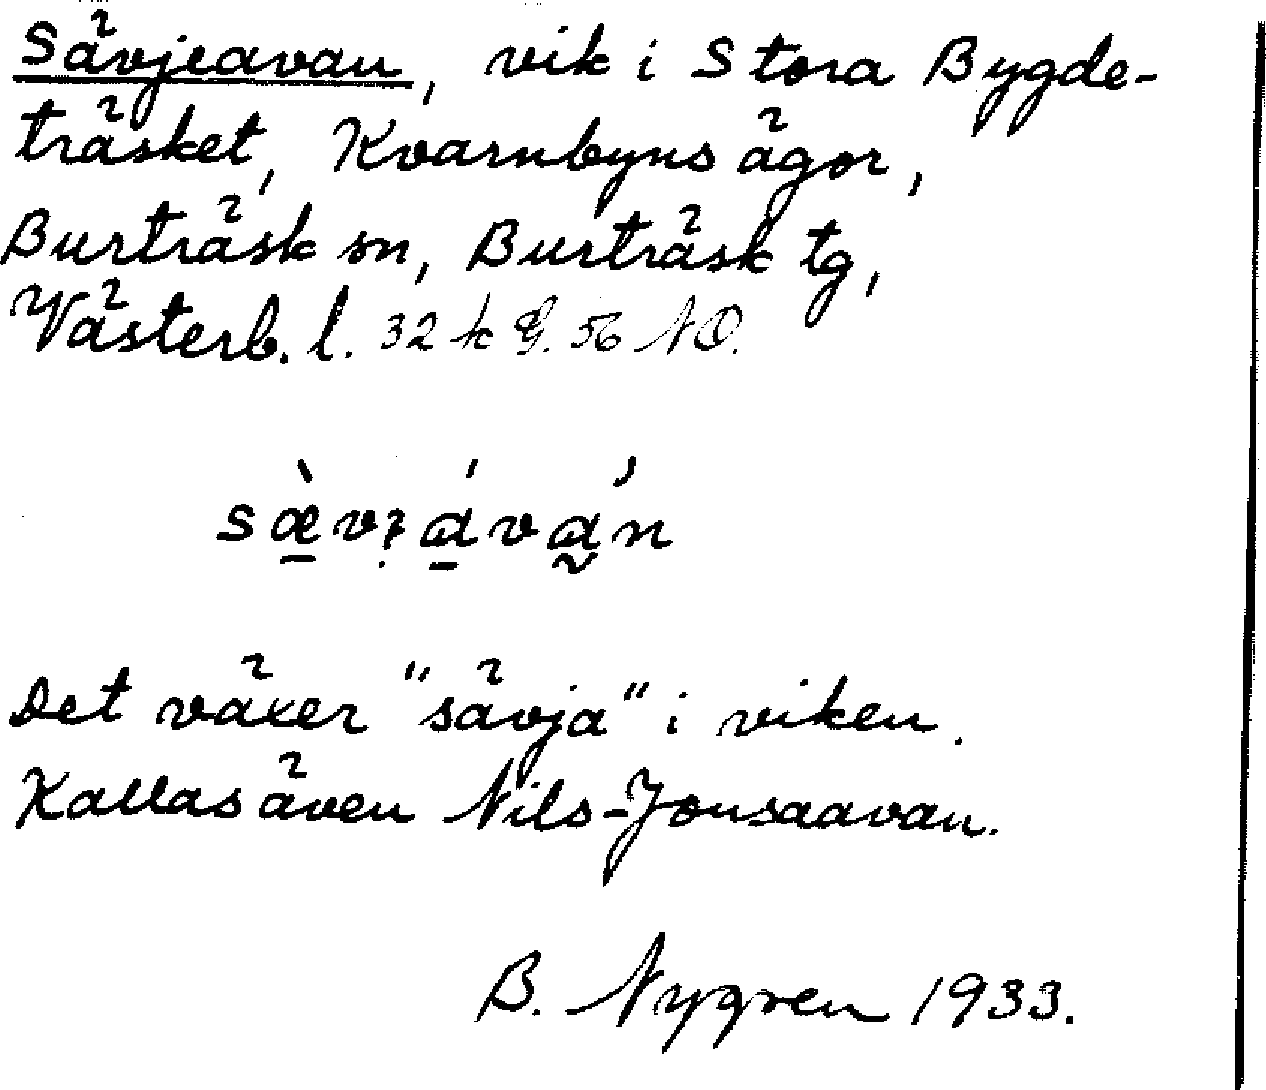 Sävjeavan, vik i Stora Bygde-
träsket, Kvarnbyns ägor,
Burträsk sn, Burträsk tg,
Västerb. l. 32 k G. 56 NO.
Det växer "sävja" i viken.
Kallas även Nils-Jonsaavan.
B. Nygren 1933.